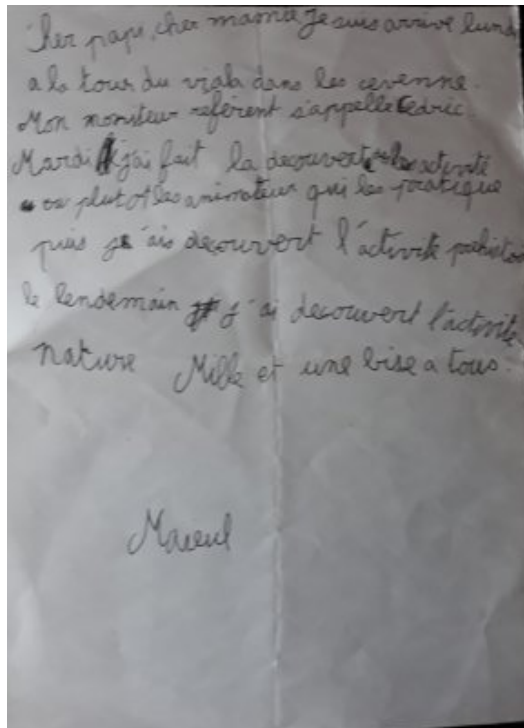 Cher papi, cher mamie Je suis arrivé lundi
a la tour du viala dans les cevenne.
Mon moniteur referent s'appelle Cedric.
Mardi j'ai fait la decouvert des activité
ou plutot les animateur qui les pratique
puis j'ais decouvert l'activité
le lendemain j'ai decouvert l'activité
nature Mille et une bise a tous.